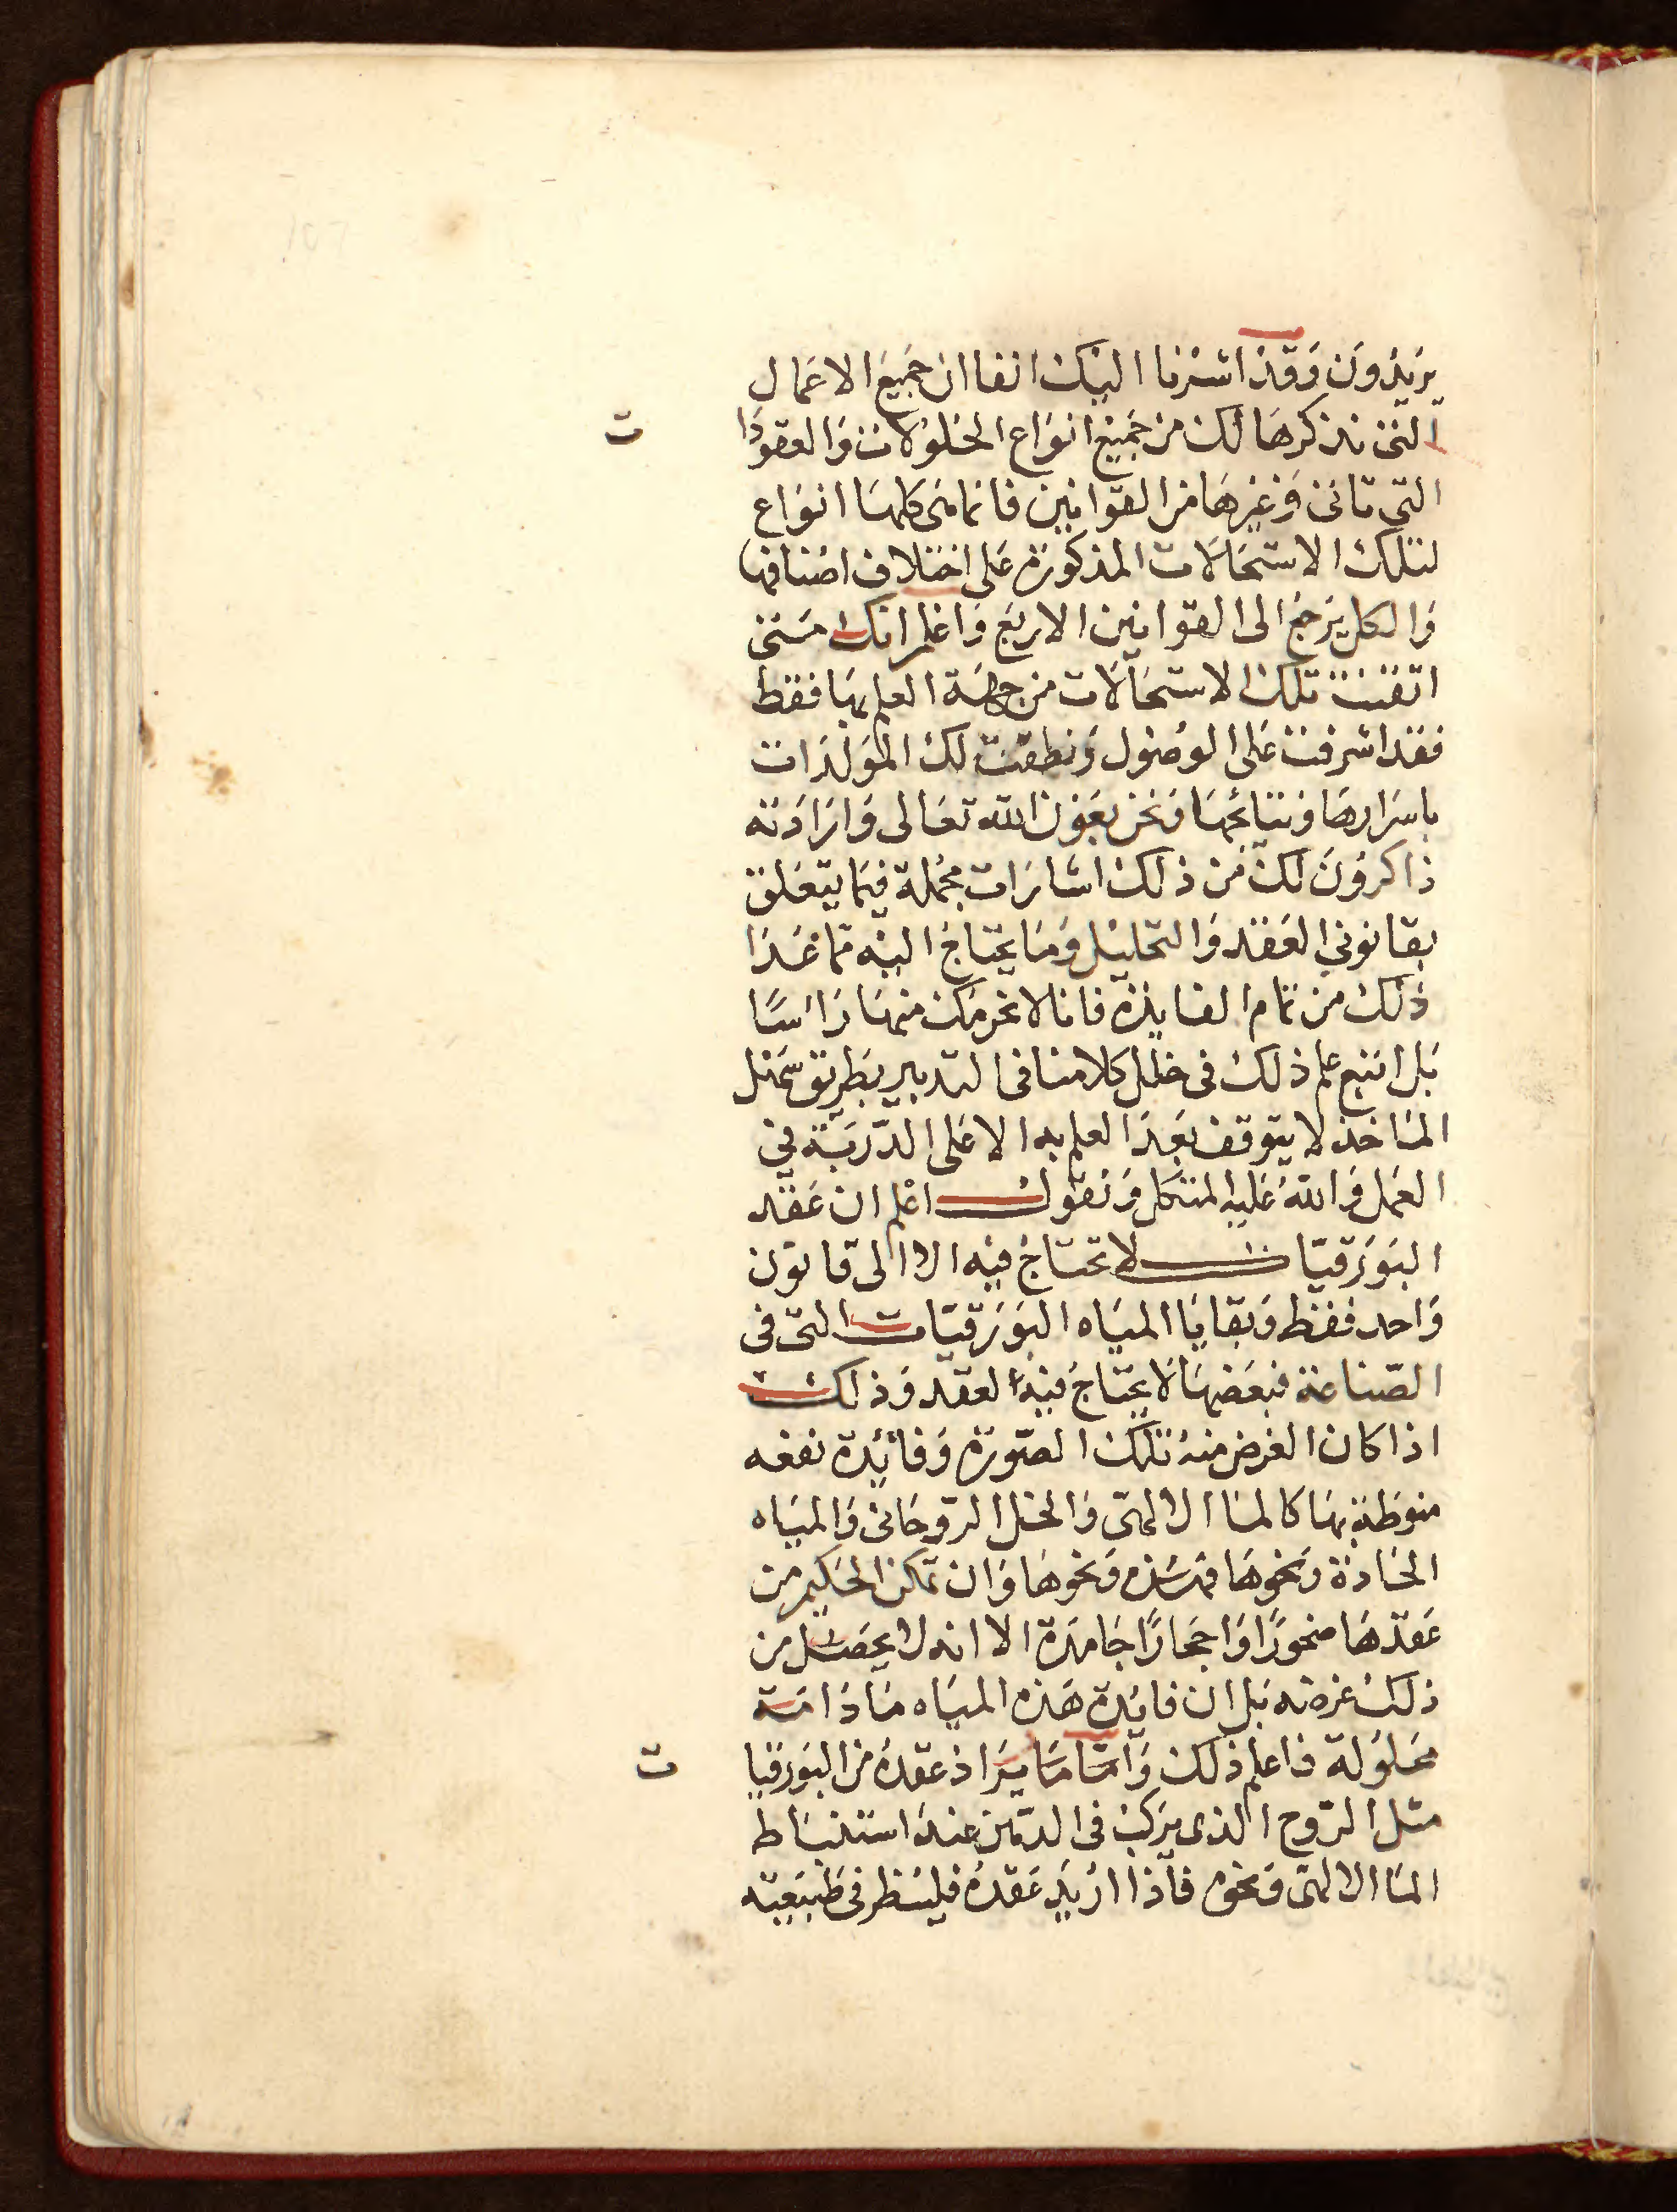 يريدون وقد اشرنا اليك انفا ان جميع الاعمال
التى نذكرها لك من جميع انواع الحلولات والعقودا
ت
التى تاتى وغيرها من القوانين فانما هى كلها انواع
لتلك الاستحالات المذكورة على اختلاف اصنافها
والكل يرجع الى القوانين الاربع واعلم انك متى
اتقنت تلك الاستحالات من جهة العلم بها فقط
فقد اشرفت على الوصول ونطقت لك المولدات
باسرارها ونتائجها ونحن بعون الله تعالى وارادته
ذاكرون لك من ذلك اشارات مجملة فيما يتعلق
بقانوني العقد والتحليل وما يحتاج اليه مما عدا
ذلك من تمام الفايدة فانا لا نحرمك منها راسًا
بل اتبع علم ذلك فى خلل كلامنا فى التدبير بطريق سهل
الماخذ لا يتوقف بعد العلم به الا على الدربة في
العمل والله عليه المتكل ونقول اعلم ان عقد
البورقيات لا تحتاج فيه الا الى قانون
واحد فقط وبقايا المياه البورقيات التى فى
الصناعة فبعضها لا يحتاج فيه العقد وذلك
اذا كان الغرض منه تلك الصورة وفائدة نفعه
منوطة بها كالما الالهى والخل الروحانى والمياه
الحادة ونحوها فهذه ونحوها وان تمكن الحكيم من
عقدها صخورًا واحجارًا جامدة الا انه لا يحصل من
ذلك غرضه بل ان فايدة هذه المياه ما دامت
محلولة فاعلم ذلك واما ما يراد عقده من البورقيا
ت
مثل الروح الذى يركب فى الدهن عند استنباط
الما الالهى ونحوه فاذا اريد عقده فلينظر فى طبيعته